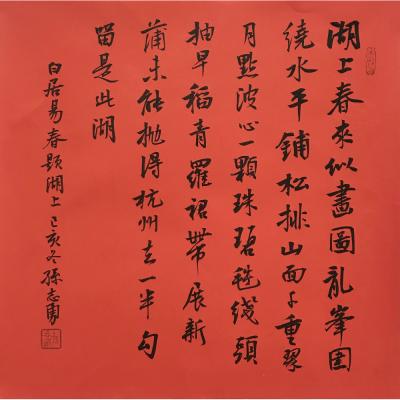 湖上春來似畫圖乱峯圍
繞水平鋪松排山面千重翠
月點波心一顆珠碧毯綫頭
抽早稻青羅裙帶展新
蒲未能拋得杭州去一半勾
留是此湖
白居易春題湖上己亥冬孫志勇